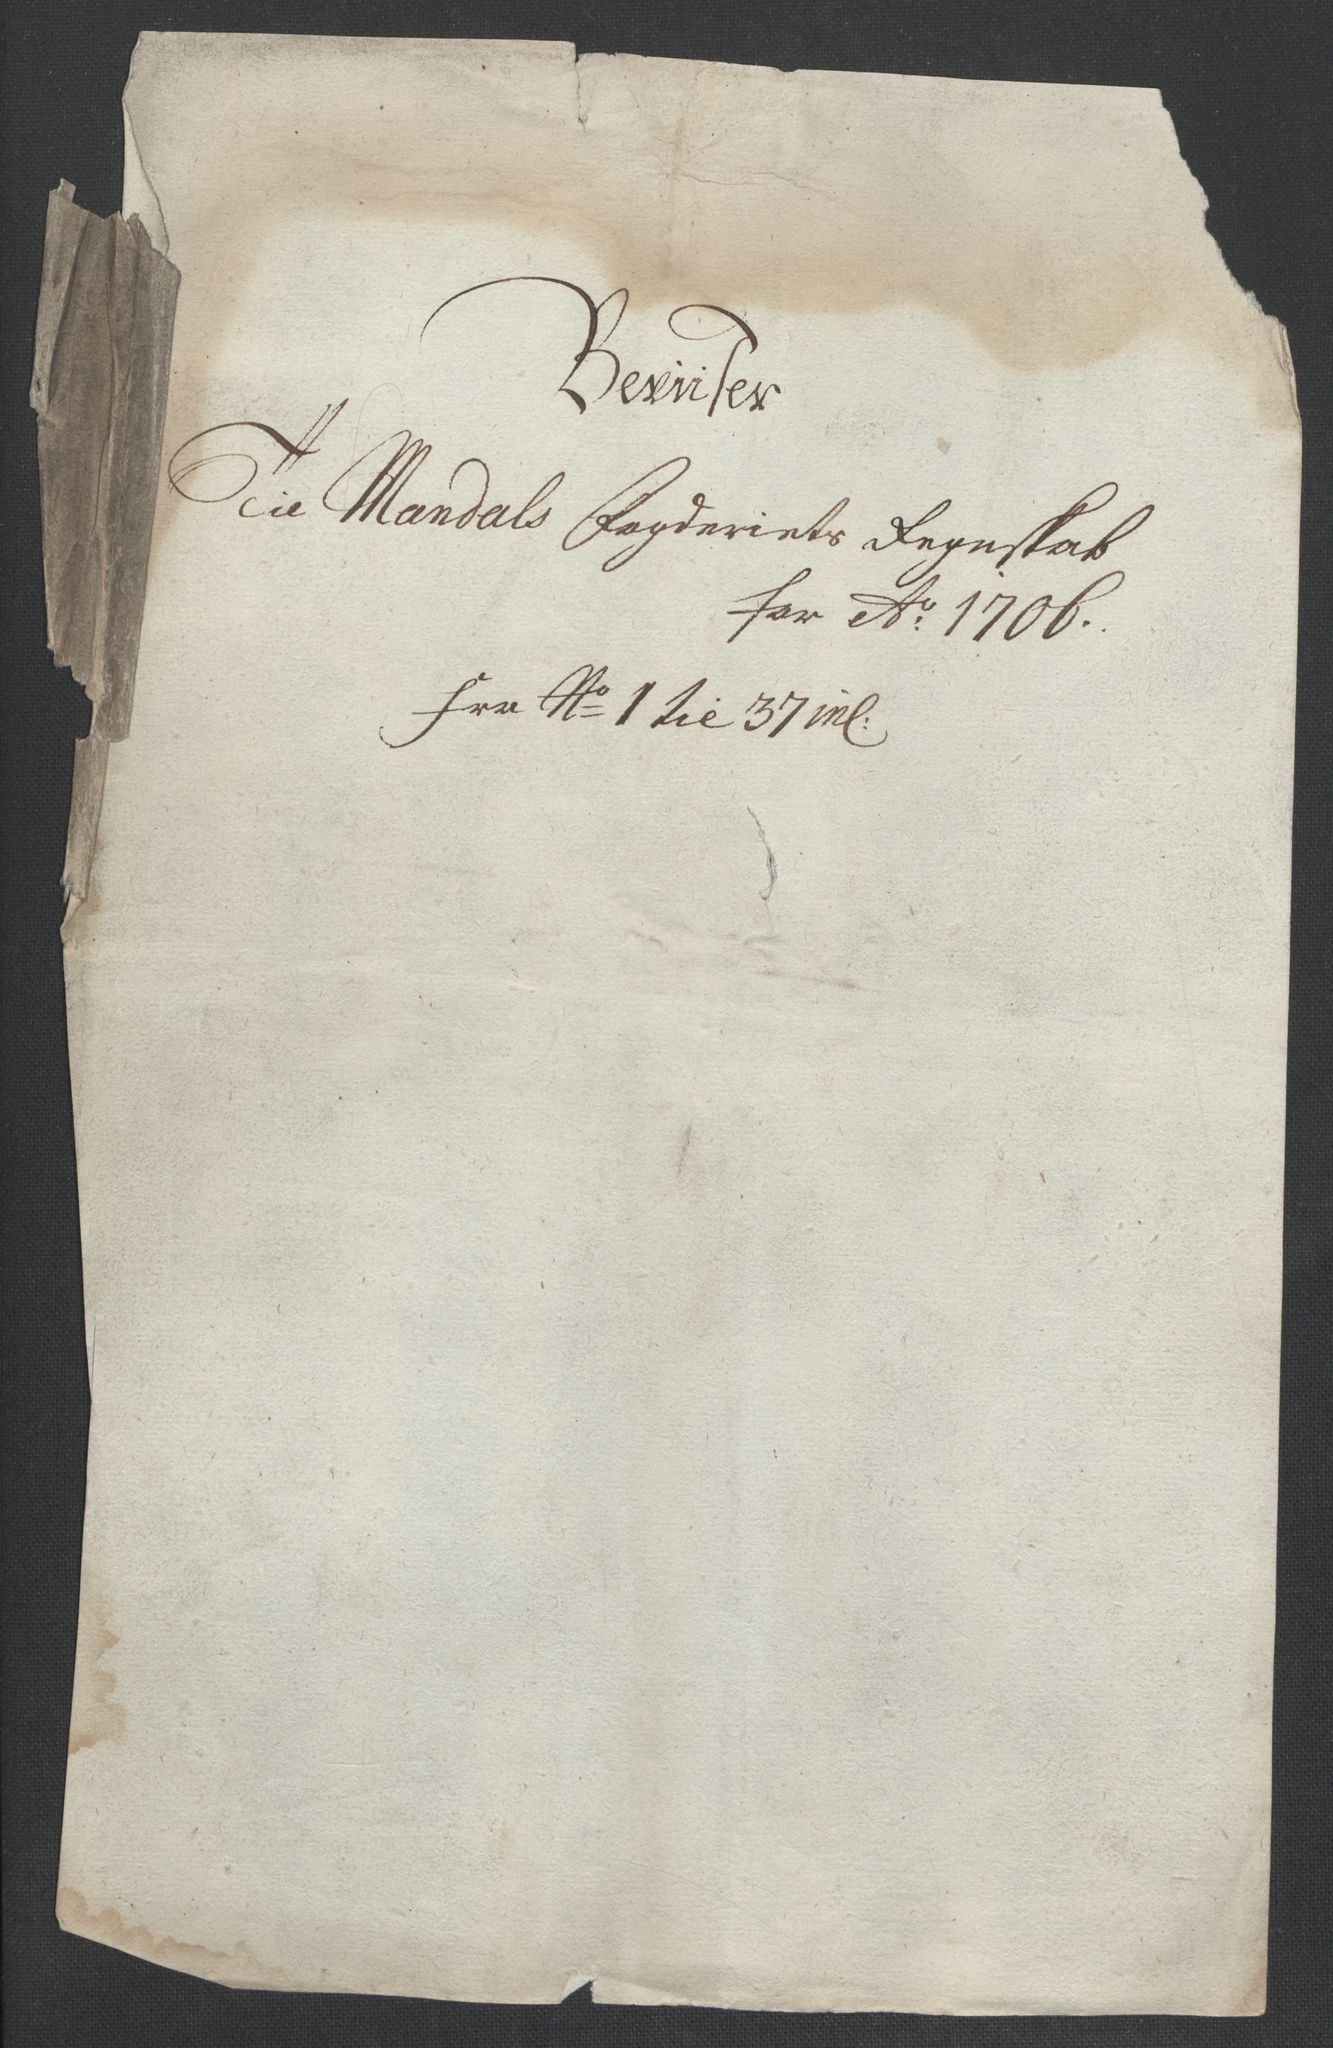 Beviiser
Til Mandals Fogderiets Regnskab
for Ao. 1706.
Fra No 1 til 37 inl: